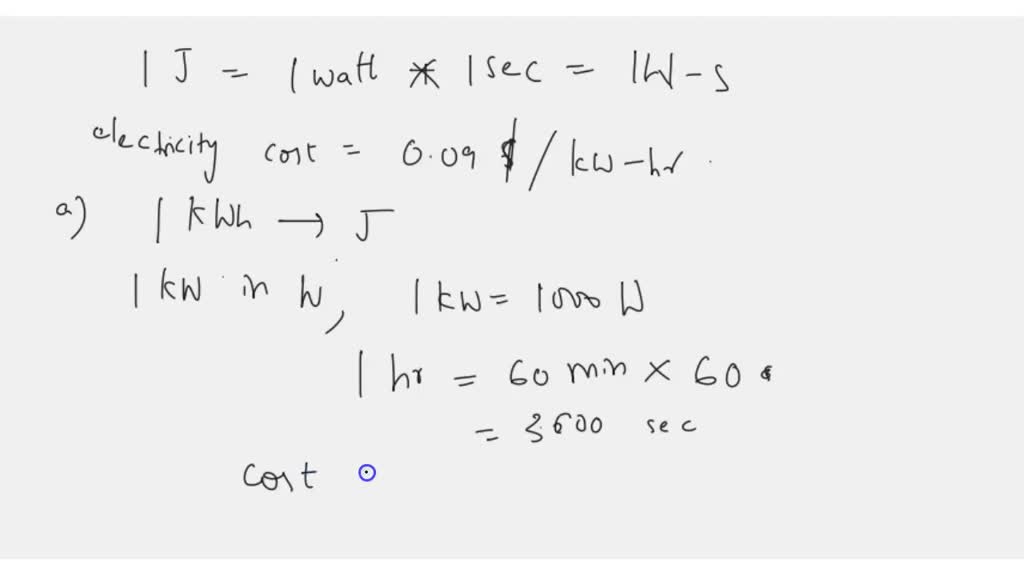 1 J = 1 watt * 1 sec = 1W-s
electricity cost = 0.09 $/kW-hr.
a) 1 kWh → J
1 kW in W, 1 kW = 1000 W
1 hr = 60 min × 60 s
= 3600 sec
cost